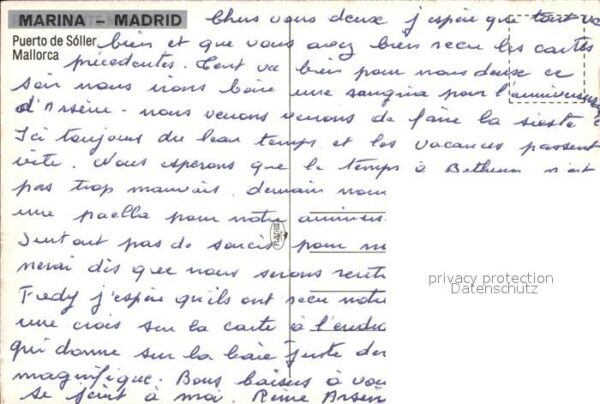 MARINA – MADRID
Puerto de Sóller
Mallorca
Chers vous deux j'espère que tout va
bien et que vous avez bien recu les cartes
precedentes. Tout va bien pour nous deux ce
soir nous irons boire une sangria pour l'anniversaire
d'Arsène - nous venons venons de faire la sieste
Ici toujours du beau temps et les vacances passent
vite. Nous esperons que le temps à Bethune n'est
pas trop mauvais. demain nous
une paella pour notre annivers
Surtout pas de soucis pour
nerai dès que nous serons rentr
Fredy j'espère qu'ils ont recu notre
une crois sur la carte à l'endro
qui donne sur la baie juste der
magnifique. Bons baisers à vou
se joint à moi. Reine Arsen
privacy protection
Datenschutz